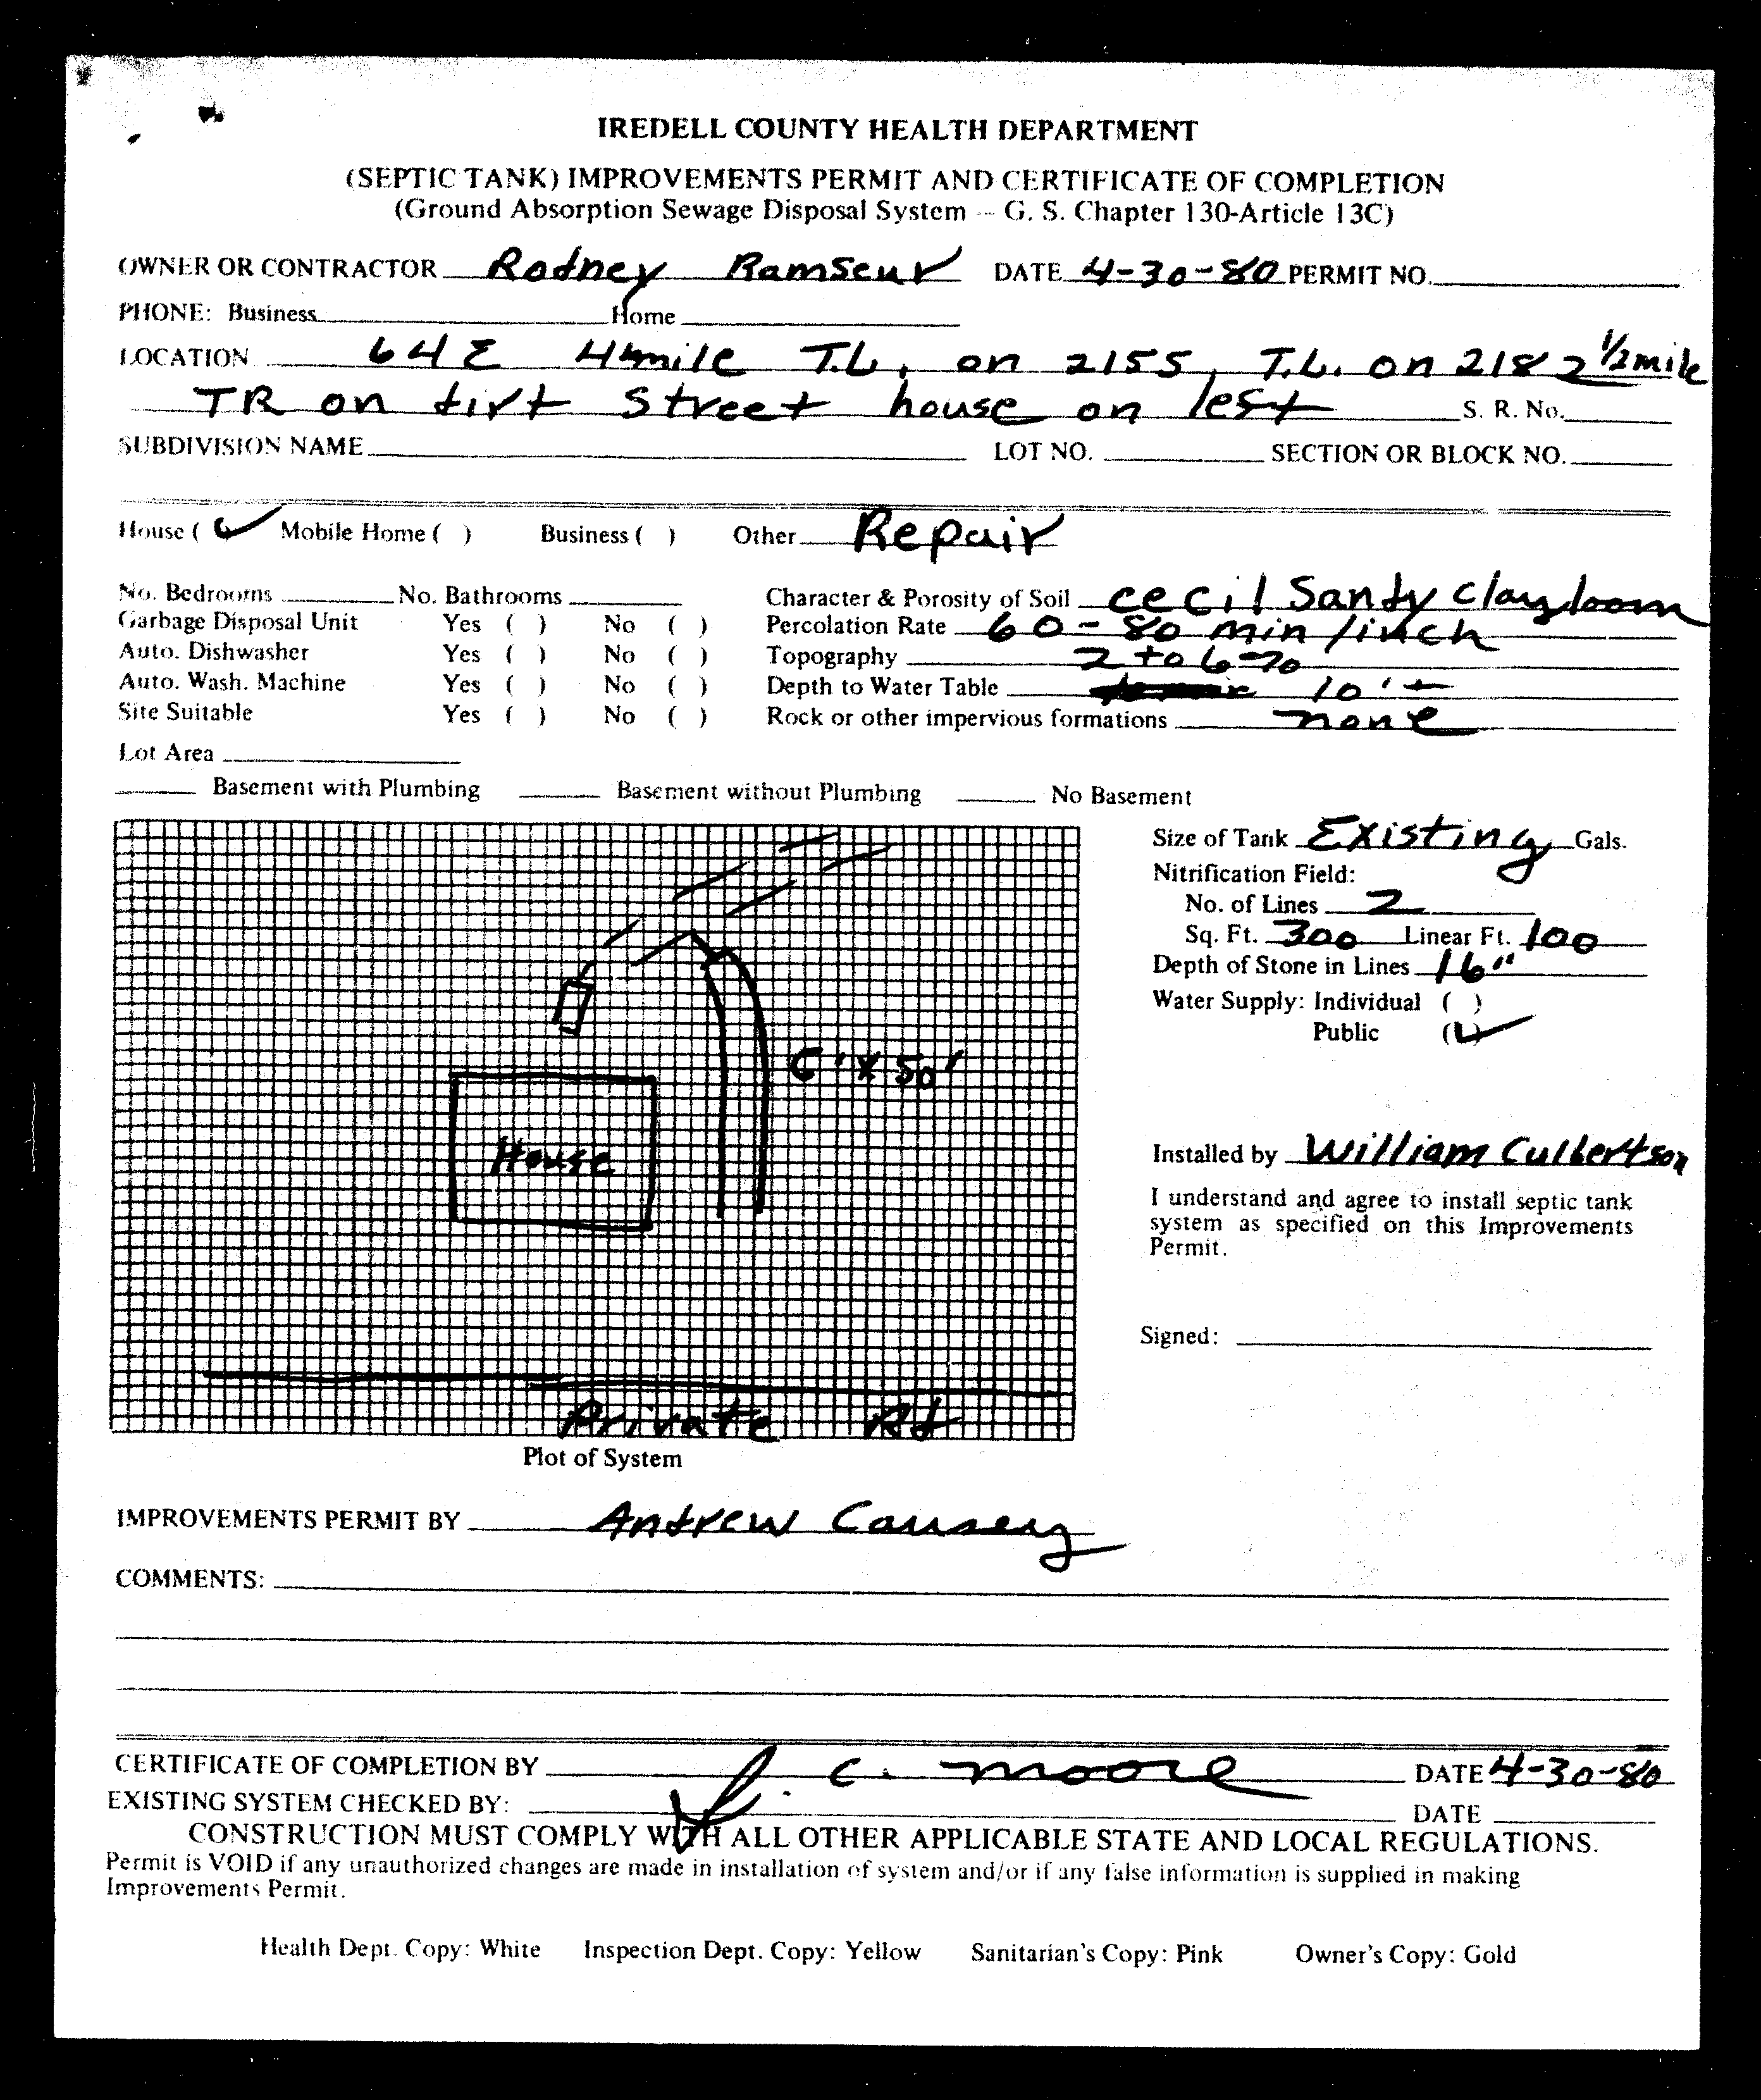 IREDELL COUNTY HEALTH DEPARTMENT
(SEPTIC TANK) IMPROVEMENTS PERMIT AND CERTIFICATE OF COMPLETION
(Ground Absorption Sewage Disposal System -- G. S. Chapter 130-Article 13C)
OWNER OR CONTRACTOR Rodney Ramseur DATE 4-30-80 PERMIT NO.
PHONE: Business Home
LOCATION 64E mile T.L. on 2155, T.L. on 2182 1/2 mile
TR on dirt Street house on left S. R. No.
SUBDIVISION NAME LOT NO. SECTION OR BLOCK NO.
House (✓) Mobile Home ( ) Business ( ) Other Repair
No. Bedrooms No. Bathrooms Character & Porosity of Soil cecil Sandy Clay loam
Garbage Disposal Unit Yes ( ) No ( ) Percolation Rate 60-80 min/inch
Auto. Dishwasher Yes ( ) No ( ) Topography 2 to 6%
Auto. Wash. Machine Yes ( ) No ( ) Depth to Water Table 10'+
Site Suitable Yes ( ) No ( ) Rock or other impervious formations none
Lot Area
Basement with Plumbing Basement without Plumbing No Basement
Size of Tank Existing Gals.
Nitrification Field:
No. of Lines 2
Sq. Ft. 300 Linear Ft. 100
Depth of Stone in Lines 16"
Water Supply: Individual ( )
Public (✓)
6' x 50'
House
Installed by William Culbertson
I understand and agree to install septic tank
system as specified on this Improvements
Permit.
Signed:
Private Rd
Plot of System
IMPROVEMENTS PERMIT BY Andrew Causey
COMMENTS:
CERTIFICATE OF COMPLETION BY J. C. Moore DATE 4-30-80
EXISTING SYSTEM CHECKED BY: DATE
CONSTRUCTION MUST COMPLY WITH ALL OTHER APPLICABLE STATE AND LOCAL REGULATIONS.
Permit is VOID if any unauthorized changes are made in installation of system and/or if any false information is supplied in making
Improvements Permit.
Health Dept. Copy: White Inspection Dept. Copy: Yellow Sanitarian's Copy: Pink Owner's Copy: Gold